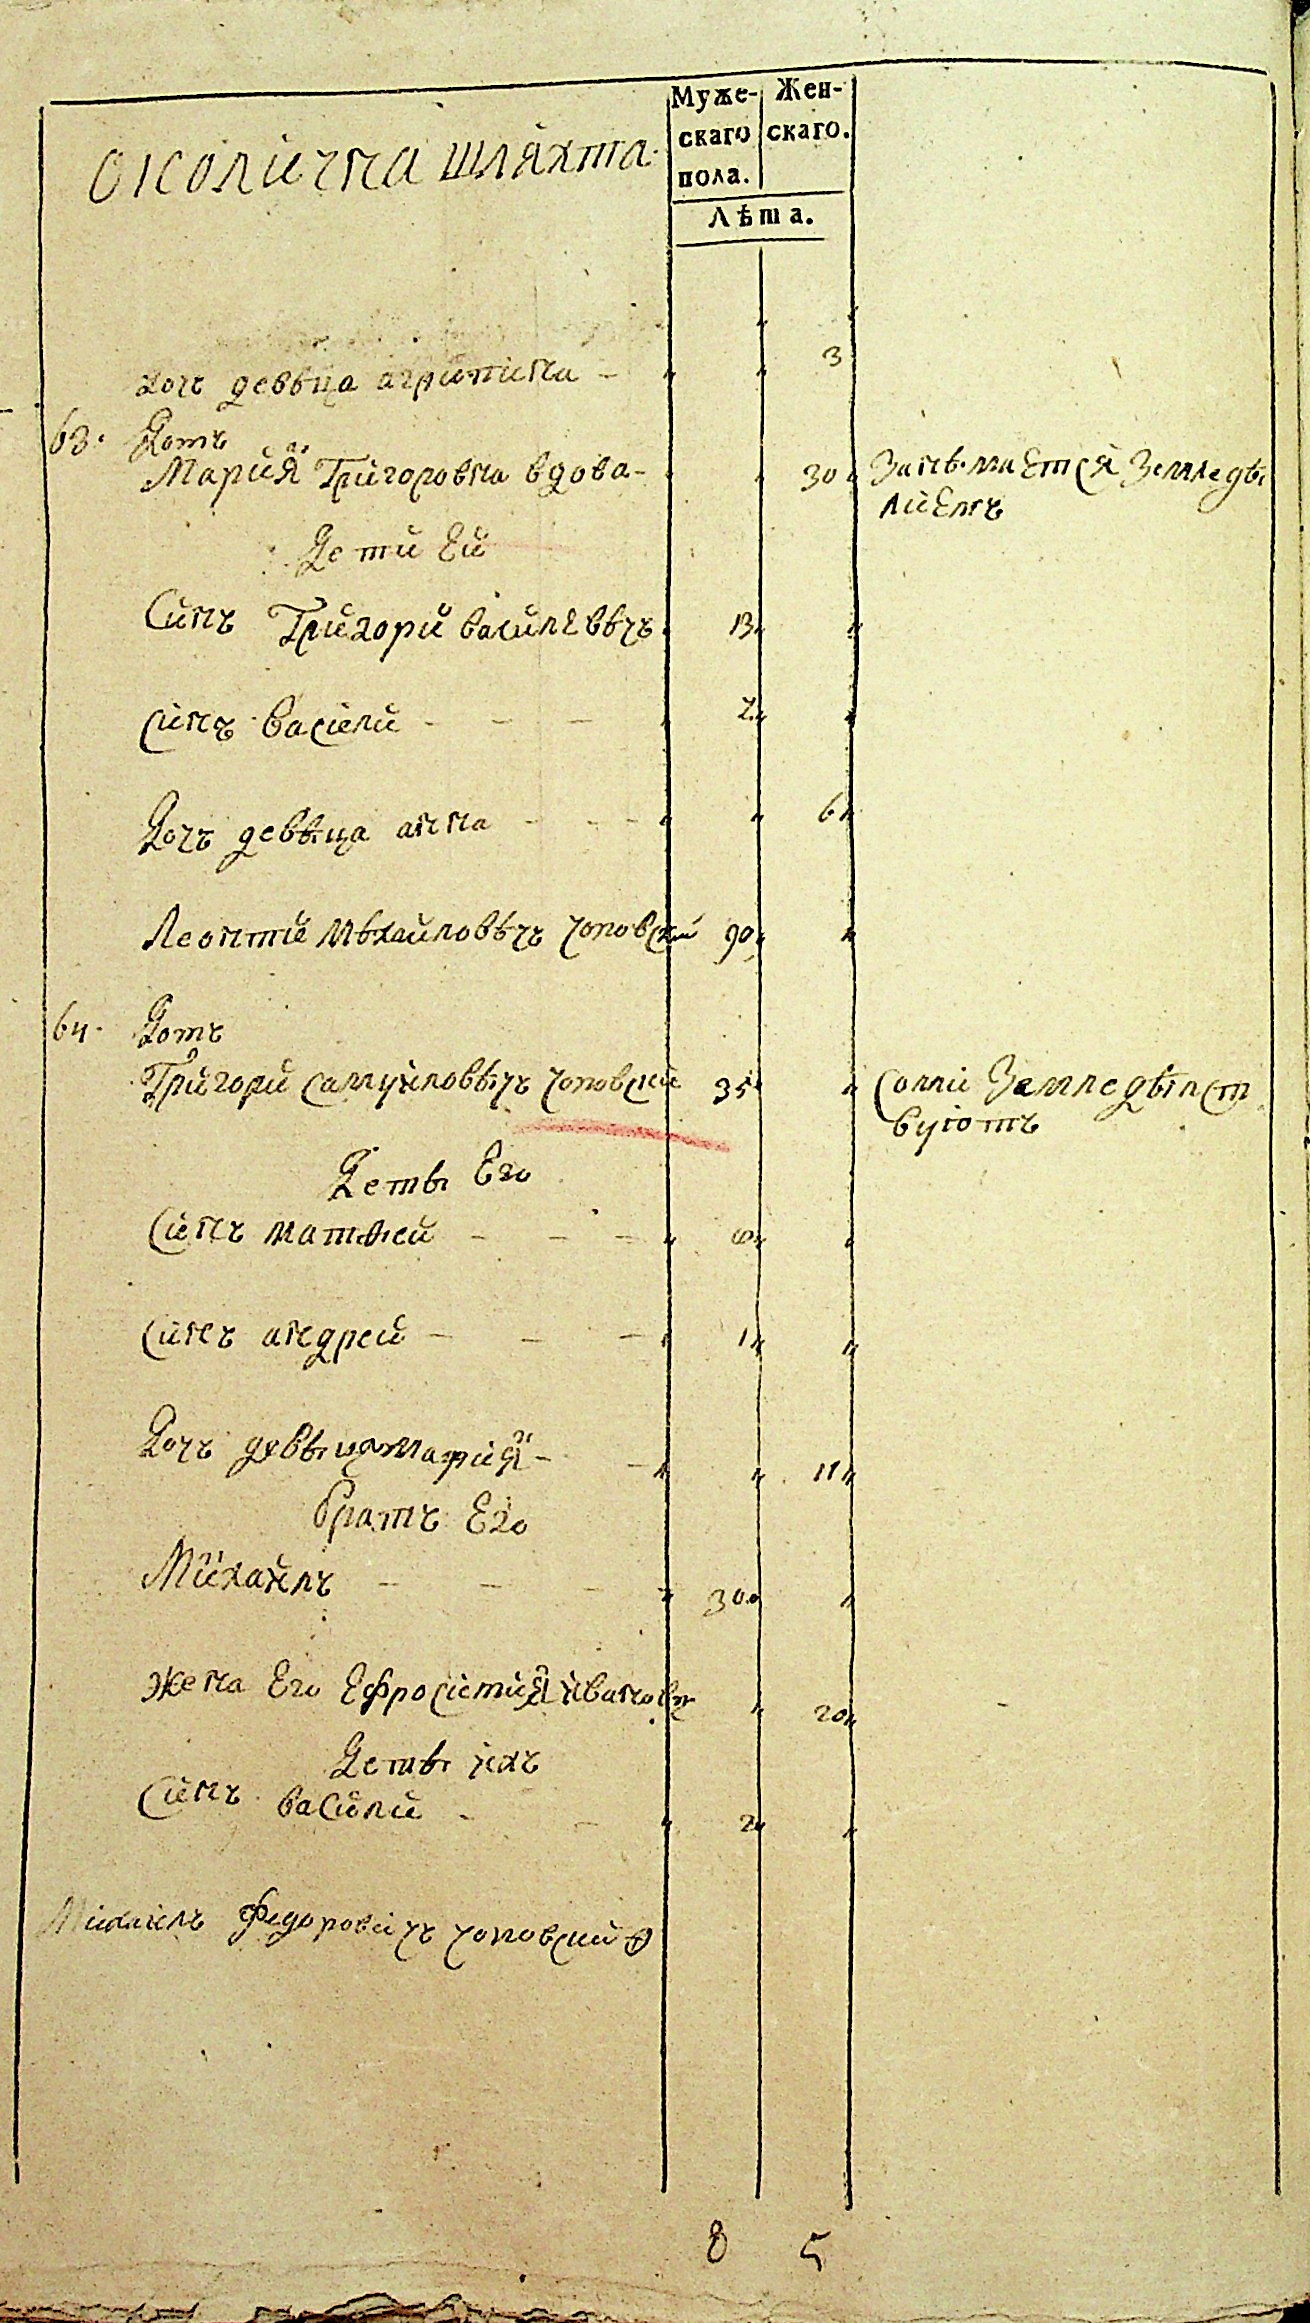 околична шляхта
Муже-
скаго
пола.
Жен-
скаго.
Лѣта.
дочъ девѣца агрипина - " " 3
63. Домъ
Мария Григоровна вдова - " 30 " Занѣмаетса Земледѣ
лиемъ
Дети Ей
Синъ Григори василевѣчъ 13 "
синъ василий - - - 7 "
Дочъ девѣца анна - - - " 6 "
Леонтий Мѣхайловѣчъ чоповский 90 "
64. Домъ
Григорй самуйловѣчъ чоповский 35 " Самий Земледѣлст
вуютъ
Детѣ Его
Синъ матѳей - - - 8 "
синъ андрей - - - 1 "
Дочъ девѣца мария - - " 11 "
братъ Его
Михайлъ - - - 30 "
жена Его Ефросиния йвановна " 20 "
Детѣ ихъ
Синъ василий - - 2 "
Михаилъ Федоровичъ чоповский
8 5